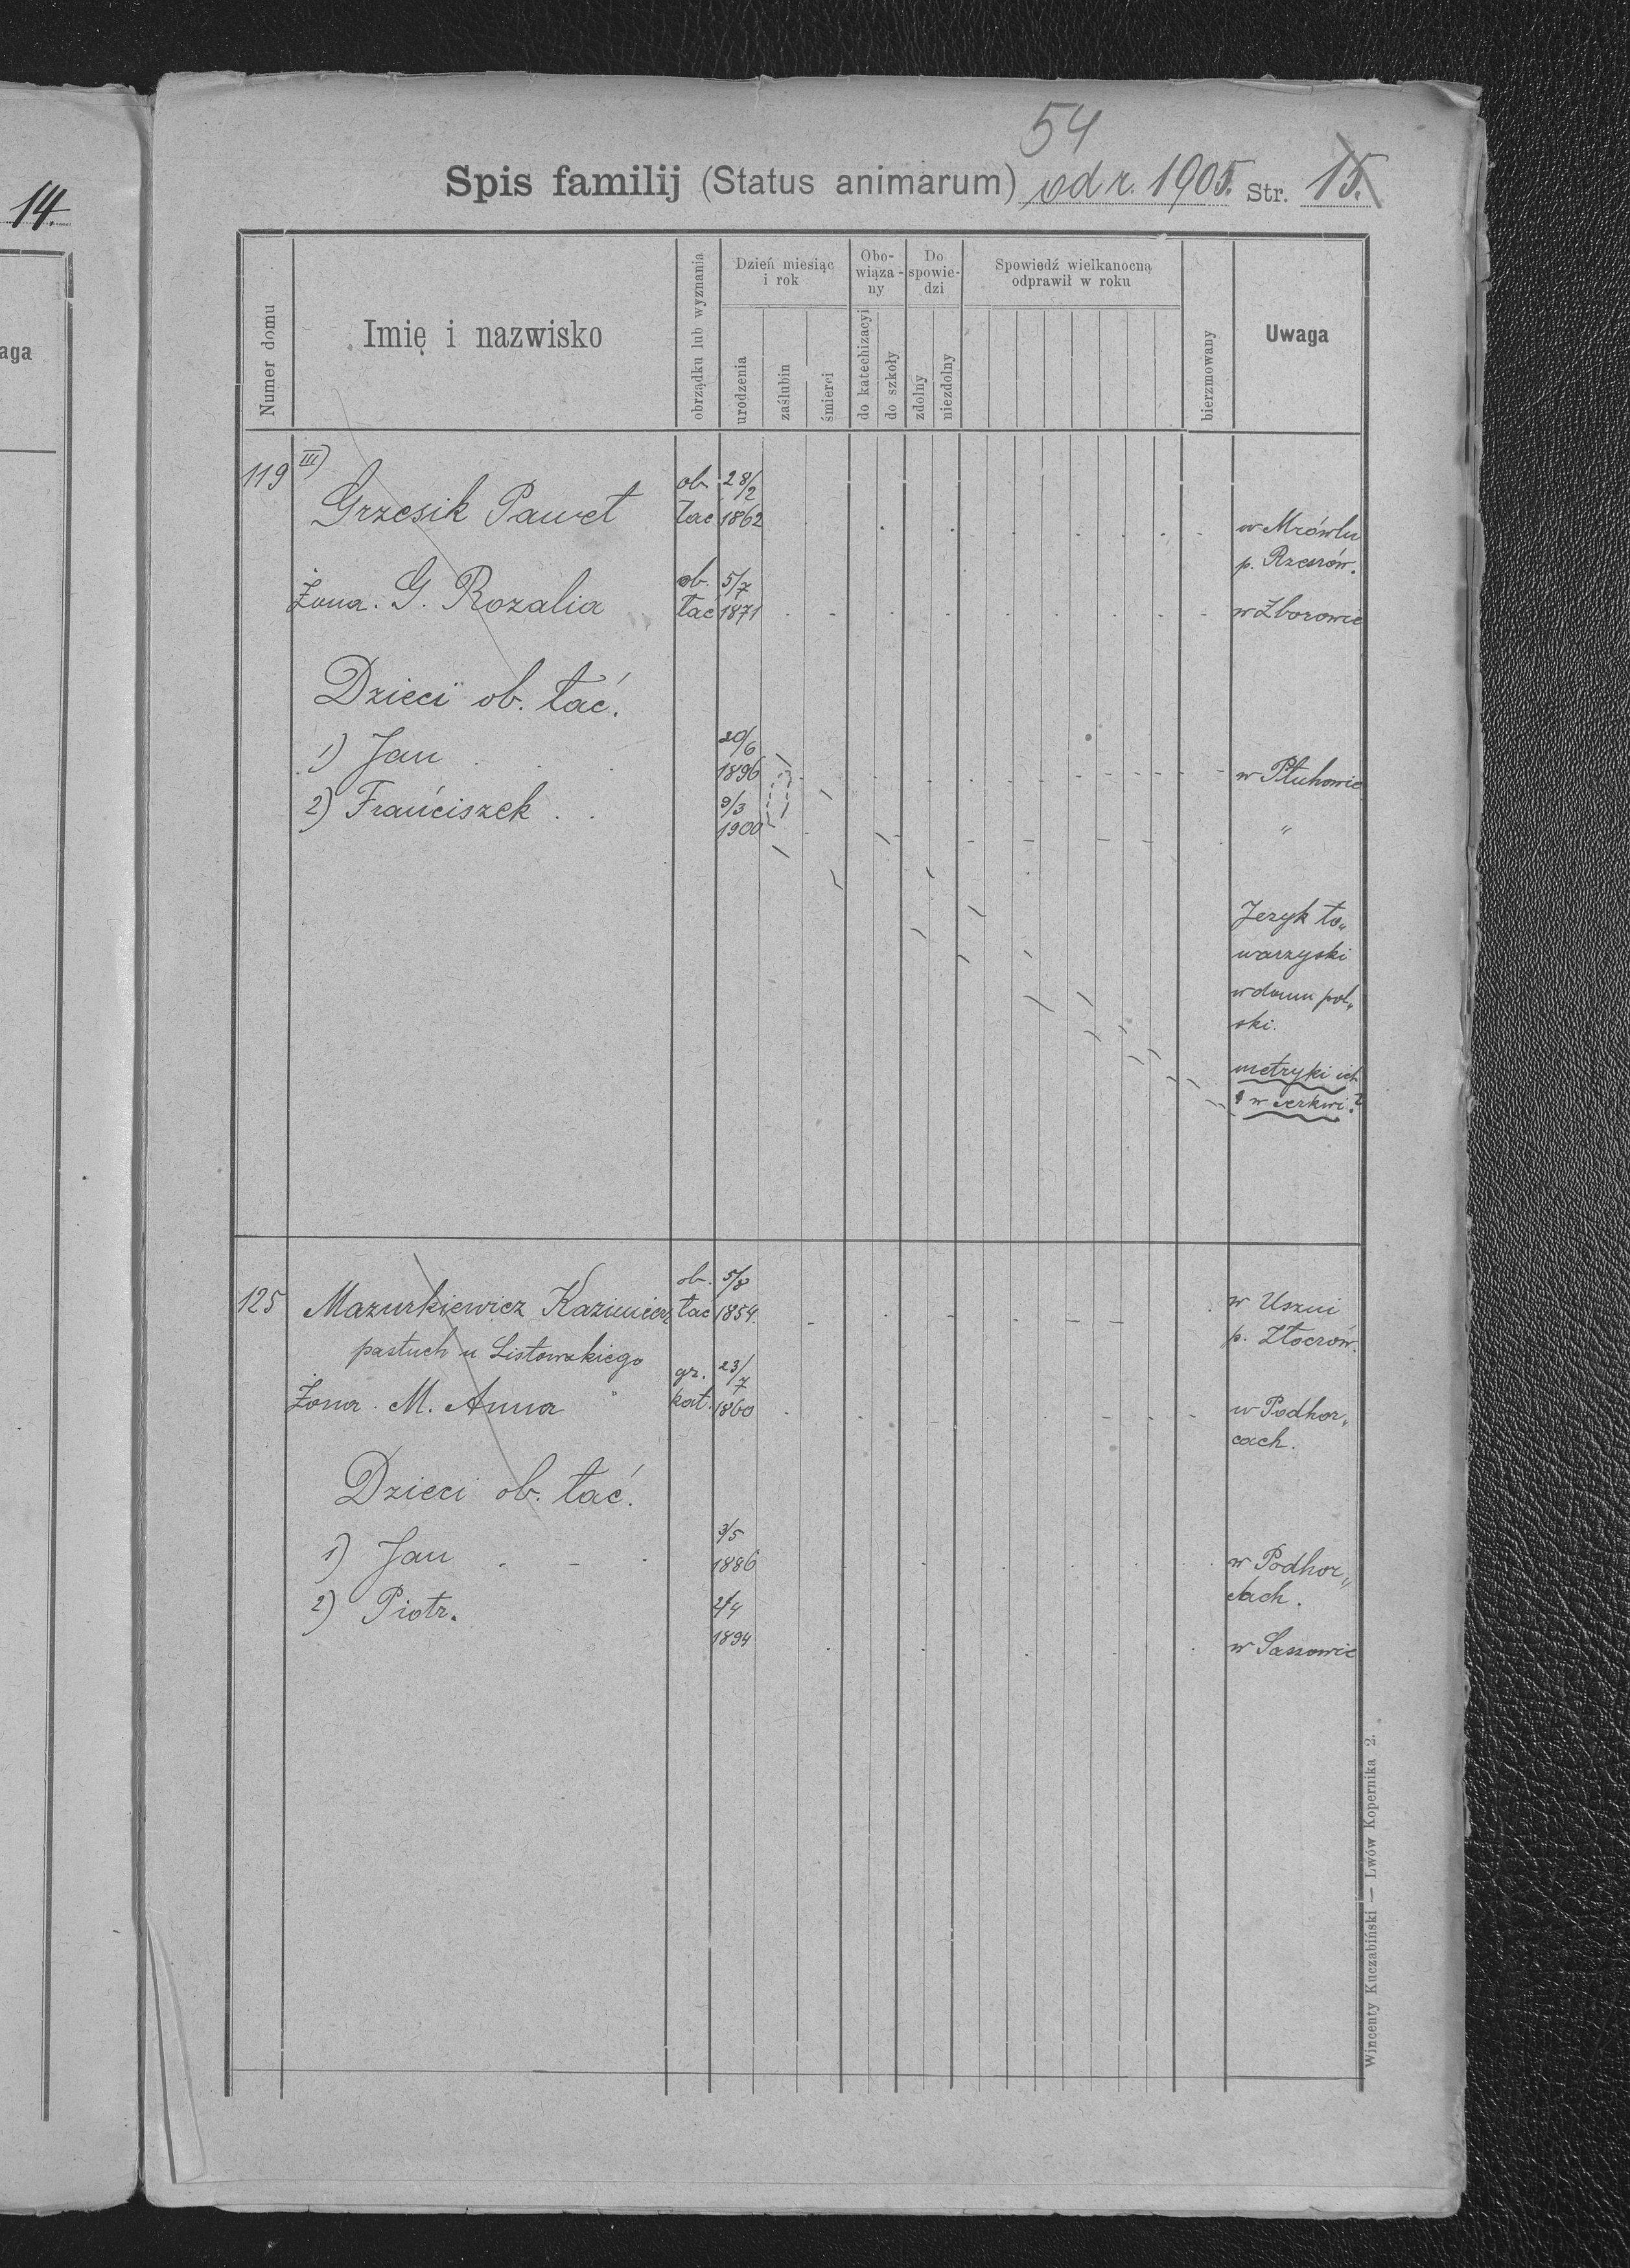 14.
aga
54
Spis familij (Status animarum) od r. 1905. Str. 15.
Numer domu
Imię i nazwisko
obrządku lub wyznania
Dzień miesiąc
i rok
urodzenia
zaślubin
śmierci
Obo-
wiąza-
ny
do katechizacyi
do szkoły
Do
spowie-
dzi
zdolny
niezdolny
Spowiedź wielkanocną
odprawił w roku
bierzmowany
Uwaga
119 III)
ob 28/2
Grzesik Paweł łac 1862 w Mrówlu
p. Rzeszów.
ob. 5/7
Żona. G. Rozalia łać 1871 w Zborowie
Dzieci ob. łać.
20/6
1) Jan 1896 w Płuhowie
9/3
2) Franciszek 1900 "
Jezyk to„
warzyski
w domu pol„
ski.
metryki ich
w cerkwi?
ob. 5/8
125 Mazurkiewicz Kazimierz łać 1854. w Uszni
pastuch u Listowskiego p. Złoczów.
gr. 23/7
Żona. M. Anna kat. 1860 w Podhor„
cach.
Dzieci ob. łać.
3/5
1) Jan 1886 w Podhor„
2) Piotr. cach.
1894 w Sassowie
Wincenty Kuczabiński — Lwów Kopernika 2.